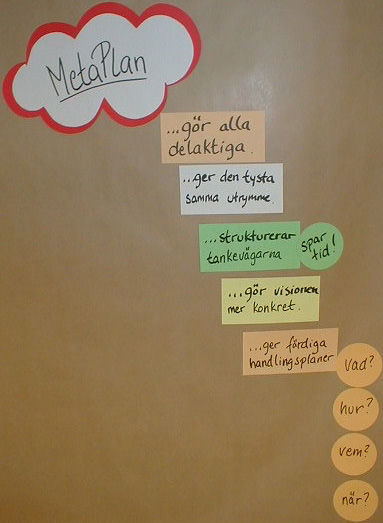 MetaPlan
...gör alla
delaktiga.
...ger den tysta
samma utrymme.
...strukturerar
tankevägarna
spar
tid!
...gör visionen
mer konkret.
...ger färdiga
handlingsplaner
vad?
hur?
vem?
när?